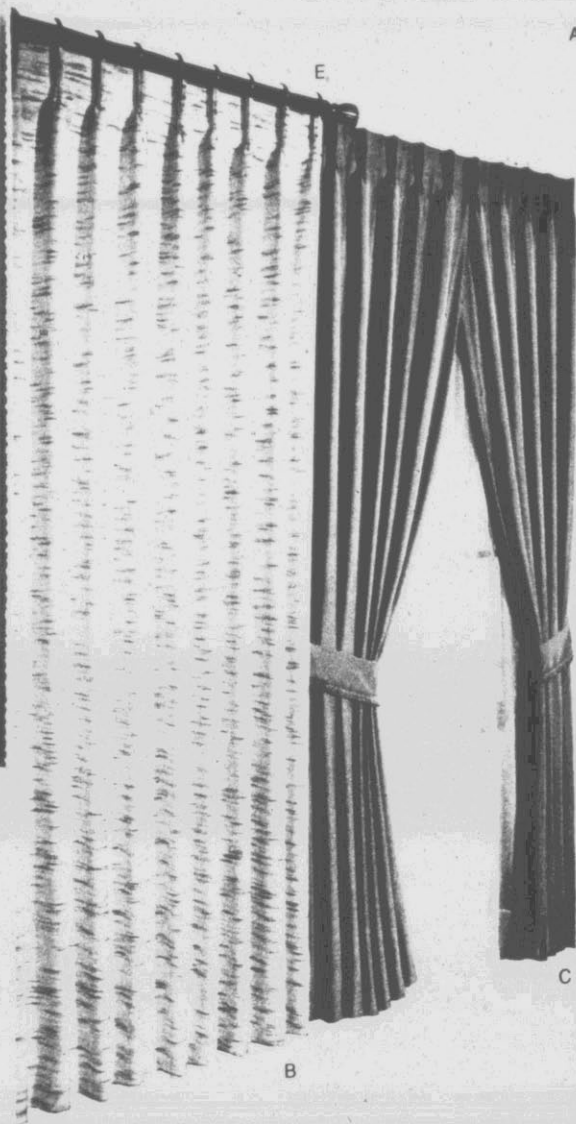 A
E
C
B